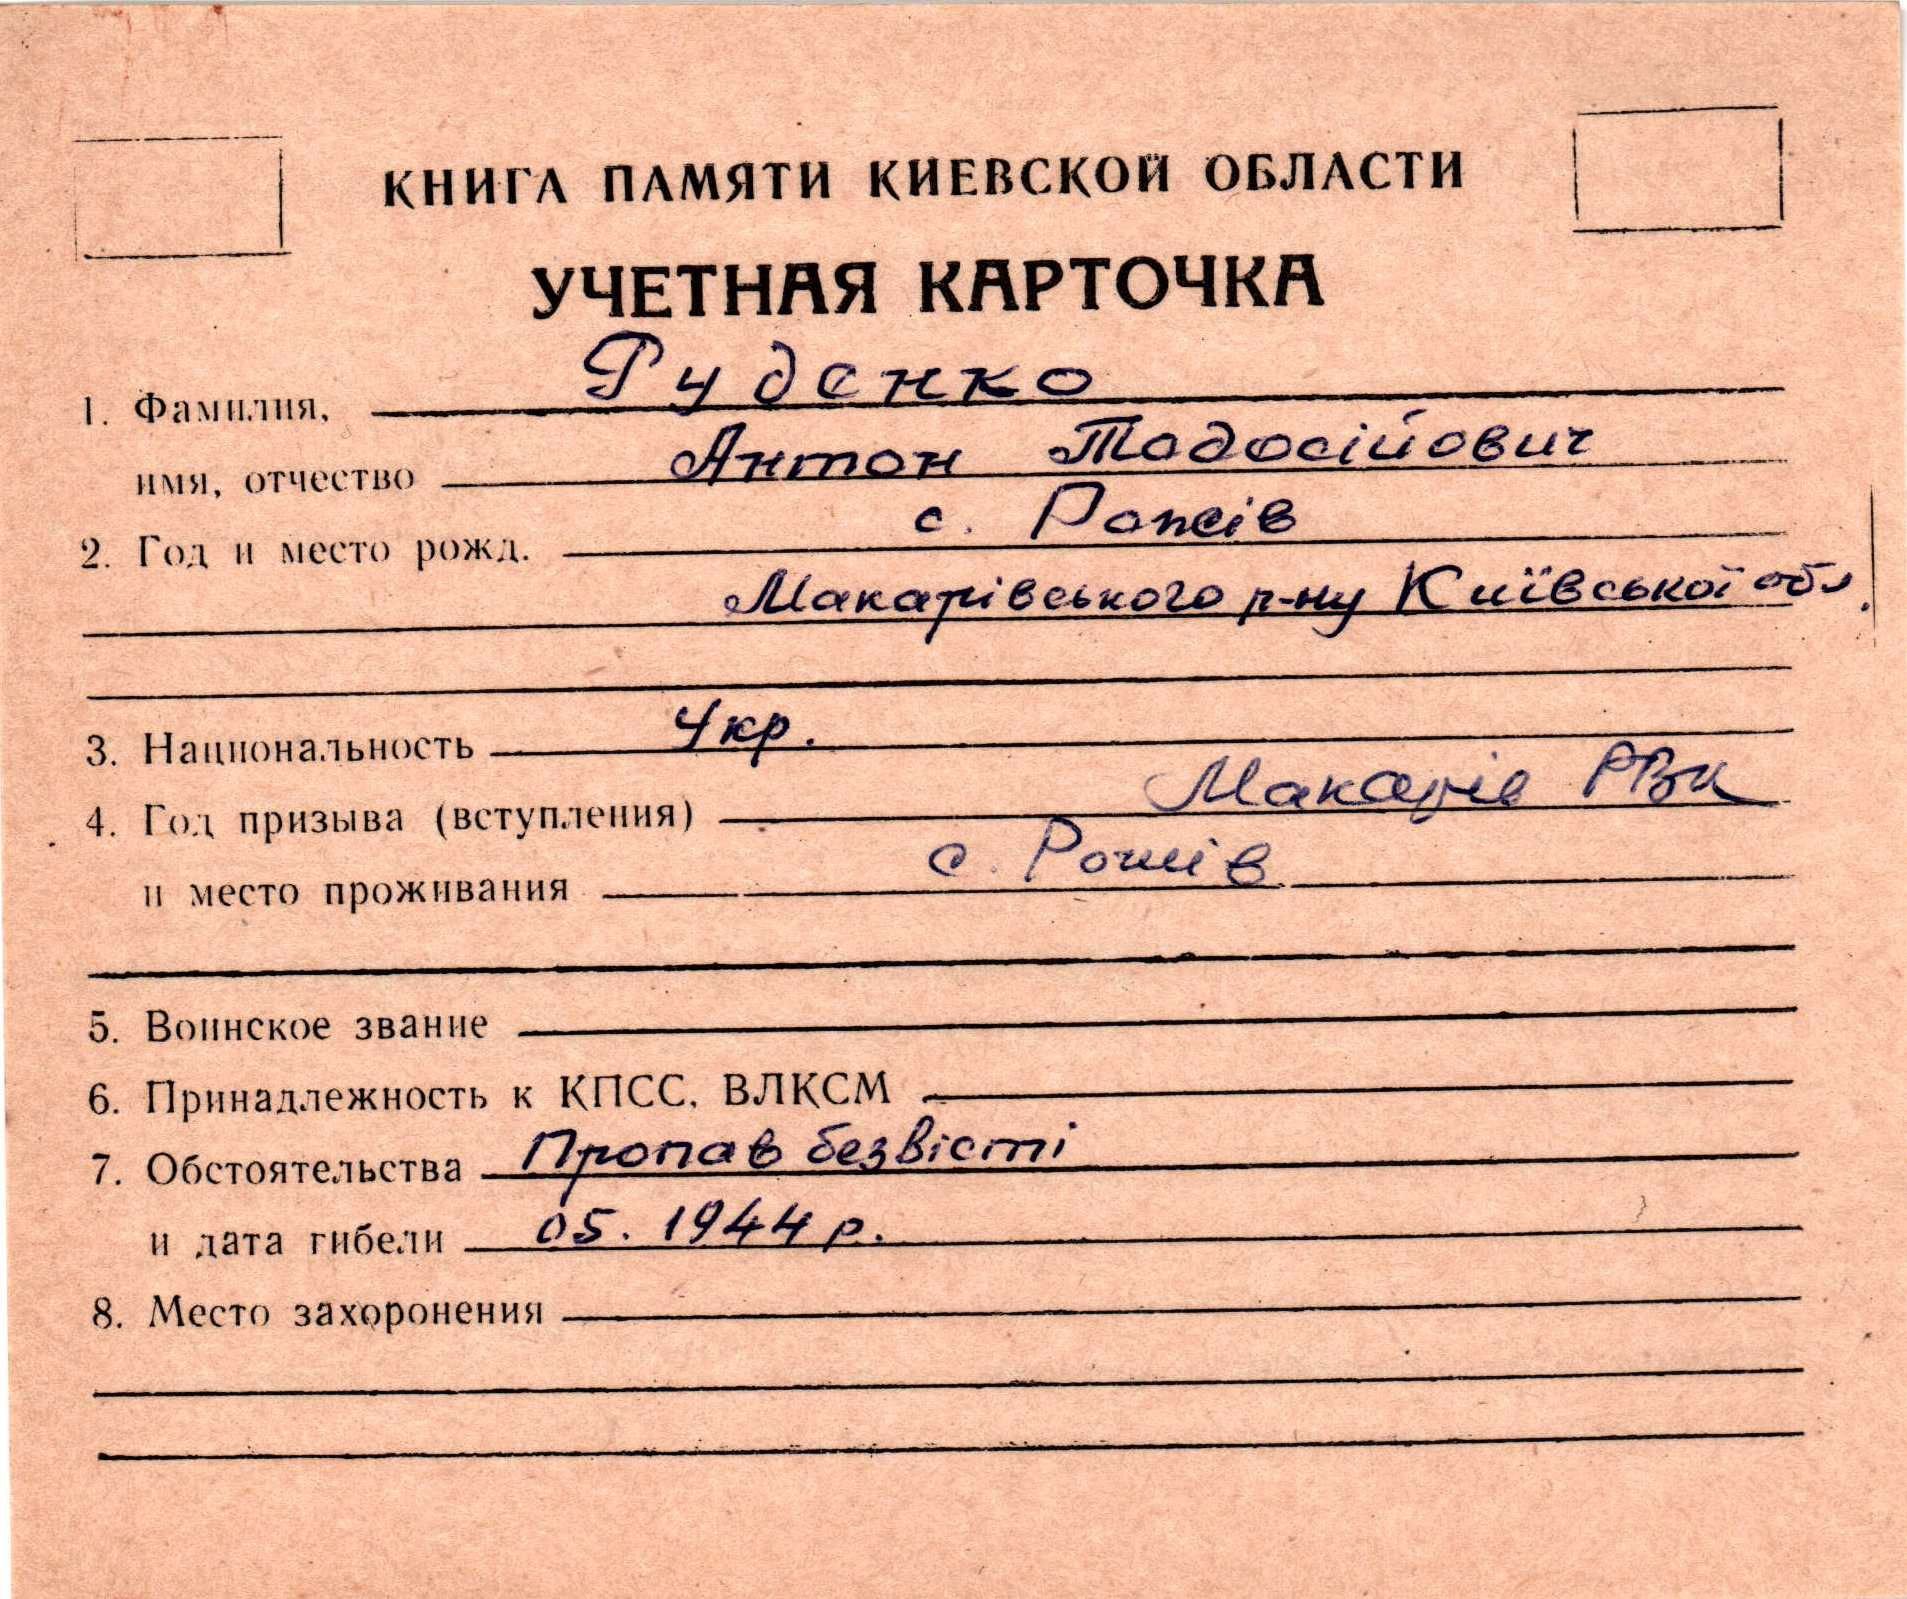 КНИГА ПАМЯТИ КИЕВСКОЙ ОБЛАСТИ
УЧЕТНАЯ КАРТОЧКА
1. Фамилия, Руденко
имя, отчество Антон Тодосійович
2. Год и место рожд. с. Рожів
Макарівського р-ну Київської обл.
3. Национальность Укр.
4. Год призыва (вступления) Макарів РВК
и место проживания с. Рожів
5. Воинское звание
6. Принадлежность к КПСС, ВЛКСМ
7. Обстоятельства Пропав безвісті
и дата гибели 05. 1944 р.
8. Место захоронения